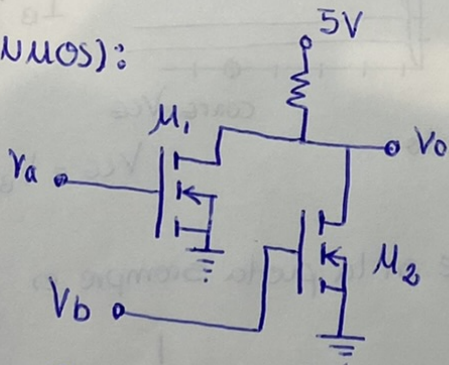 NMOS):
5V
M1
Va
Vo
M2
Vb